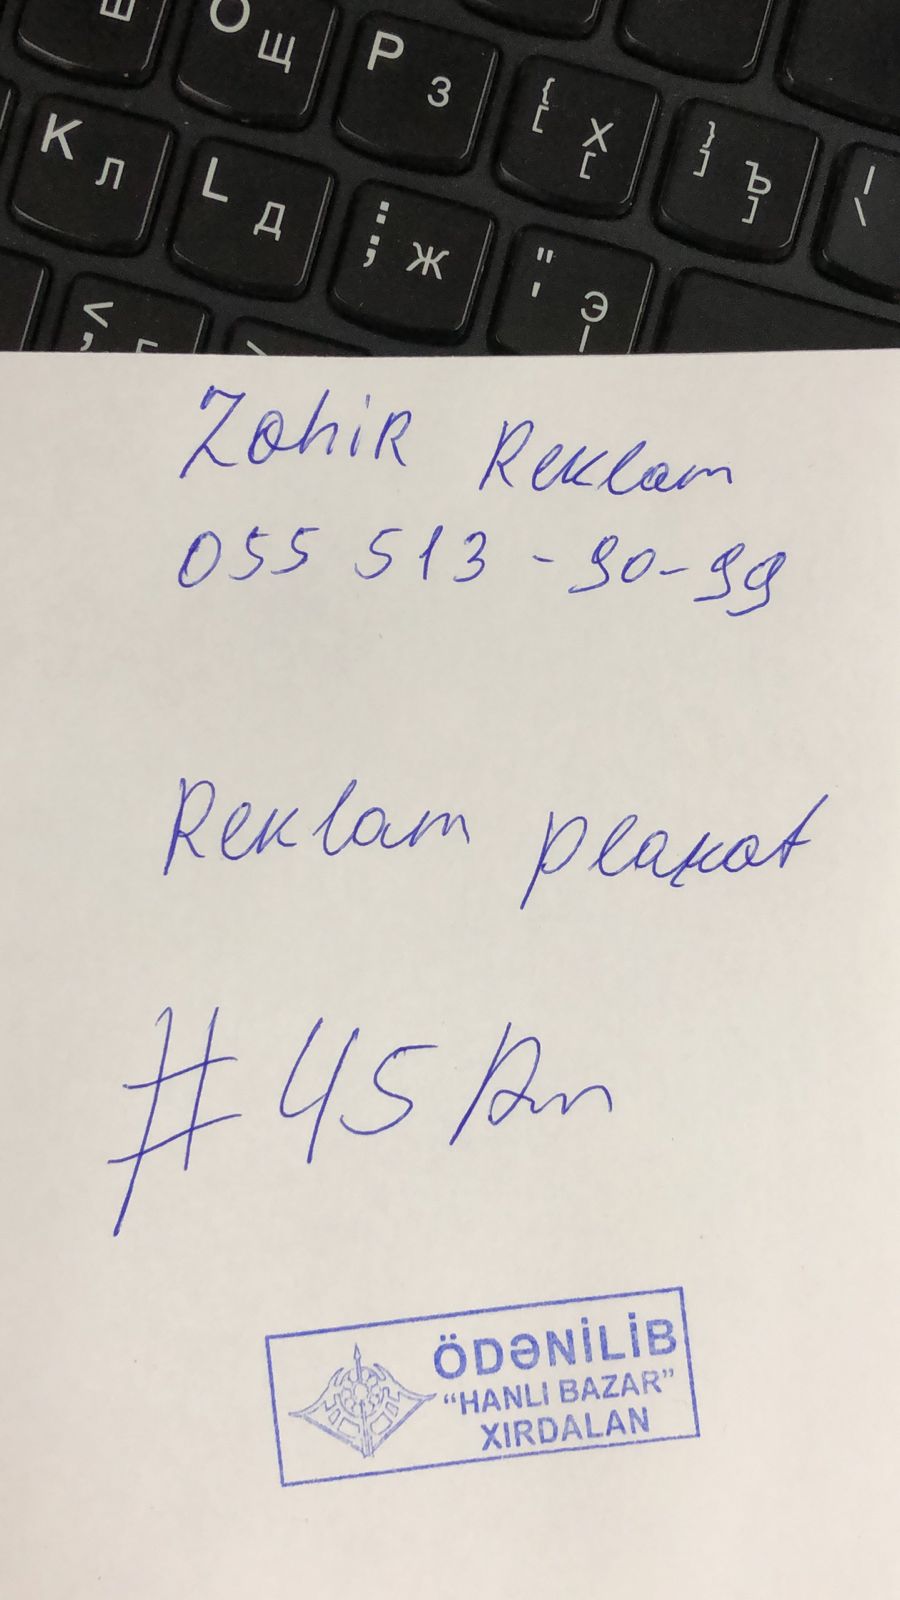 Ш
O Щ
P З
{ [ Х [
} ] Ъ ]
| \
K Л
L Д
: ; Ж
" ' Э
< ,
>
Zahir Reklam
055 513 - 90-99
Reklam plakat
# 45 Azn
ÖDƏNİLİB
"HANLI BAZAR"
XIRDALAN